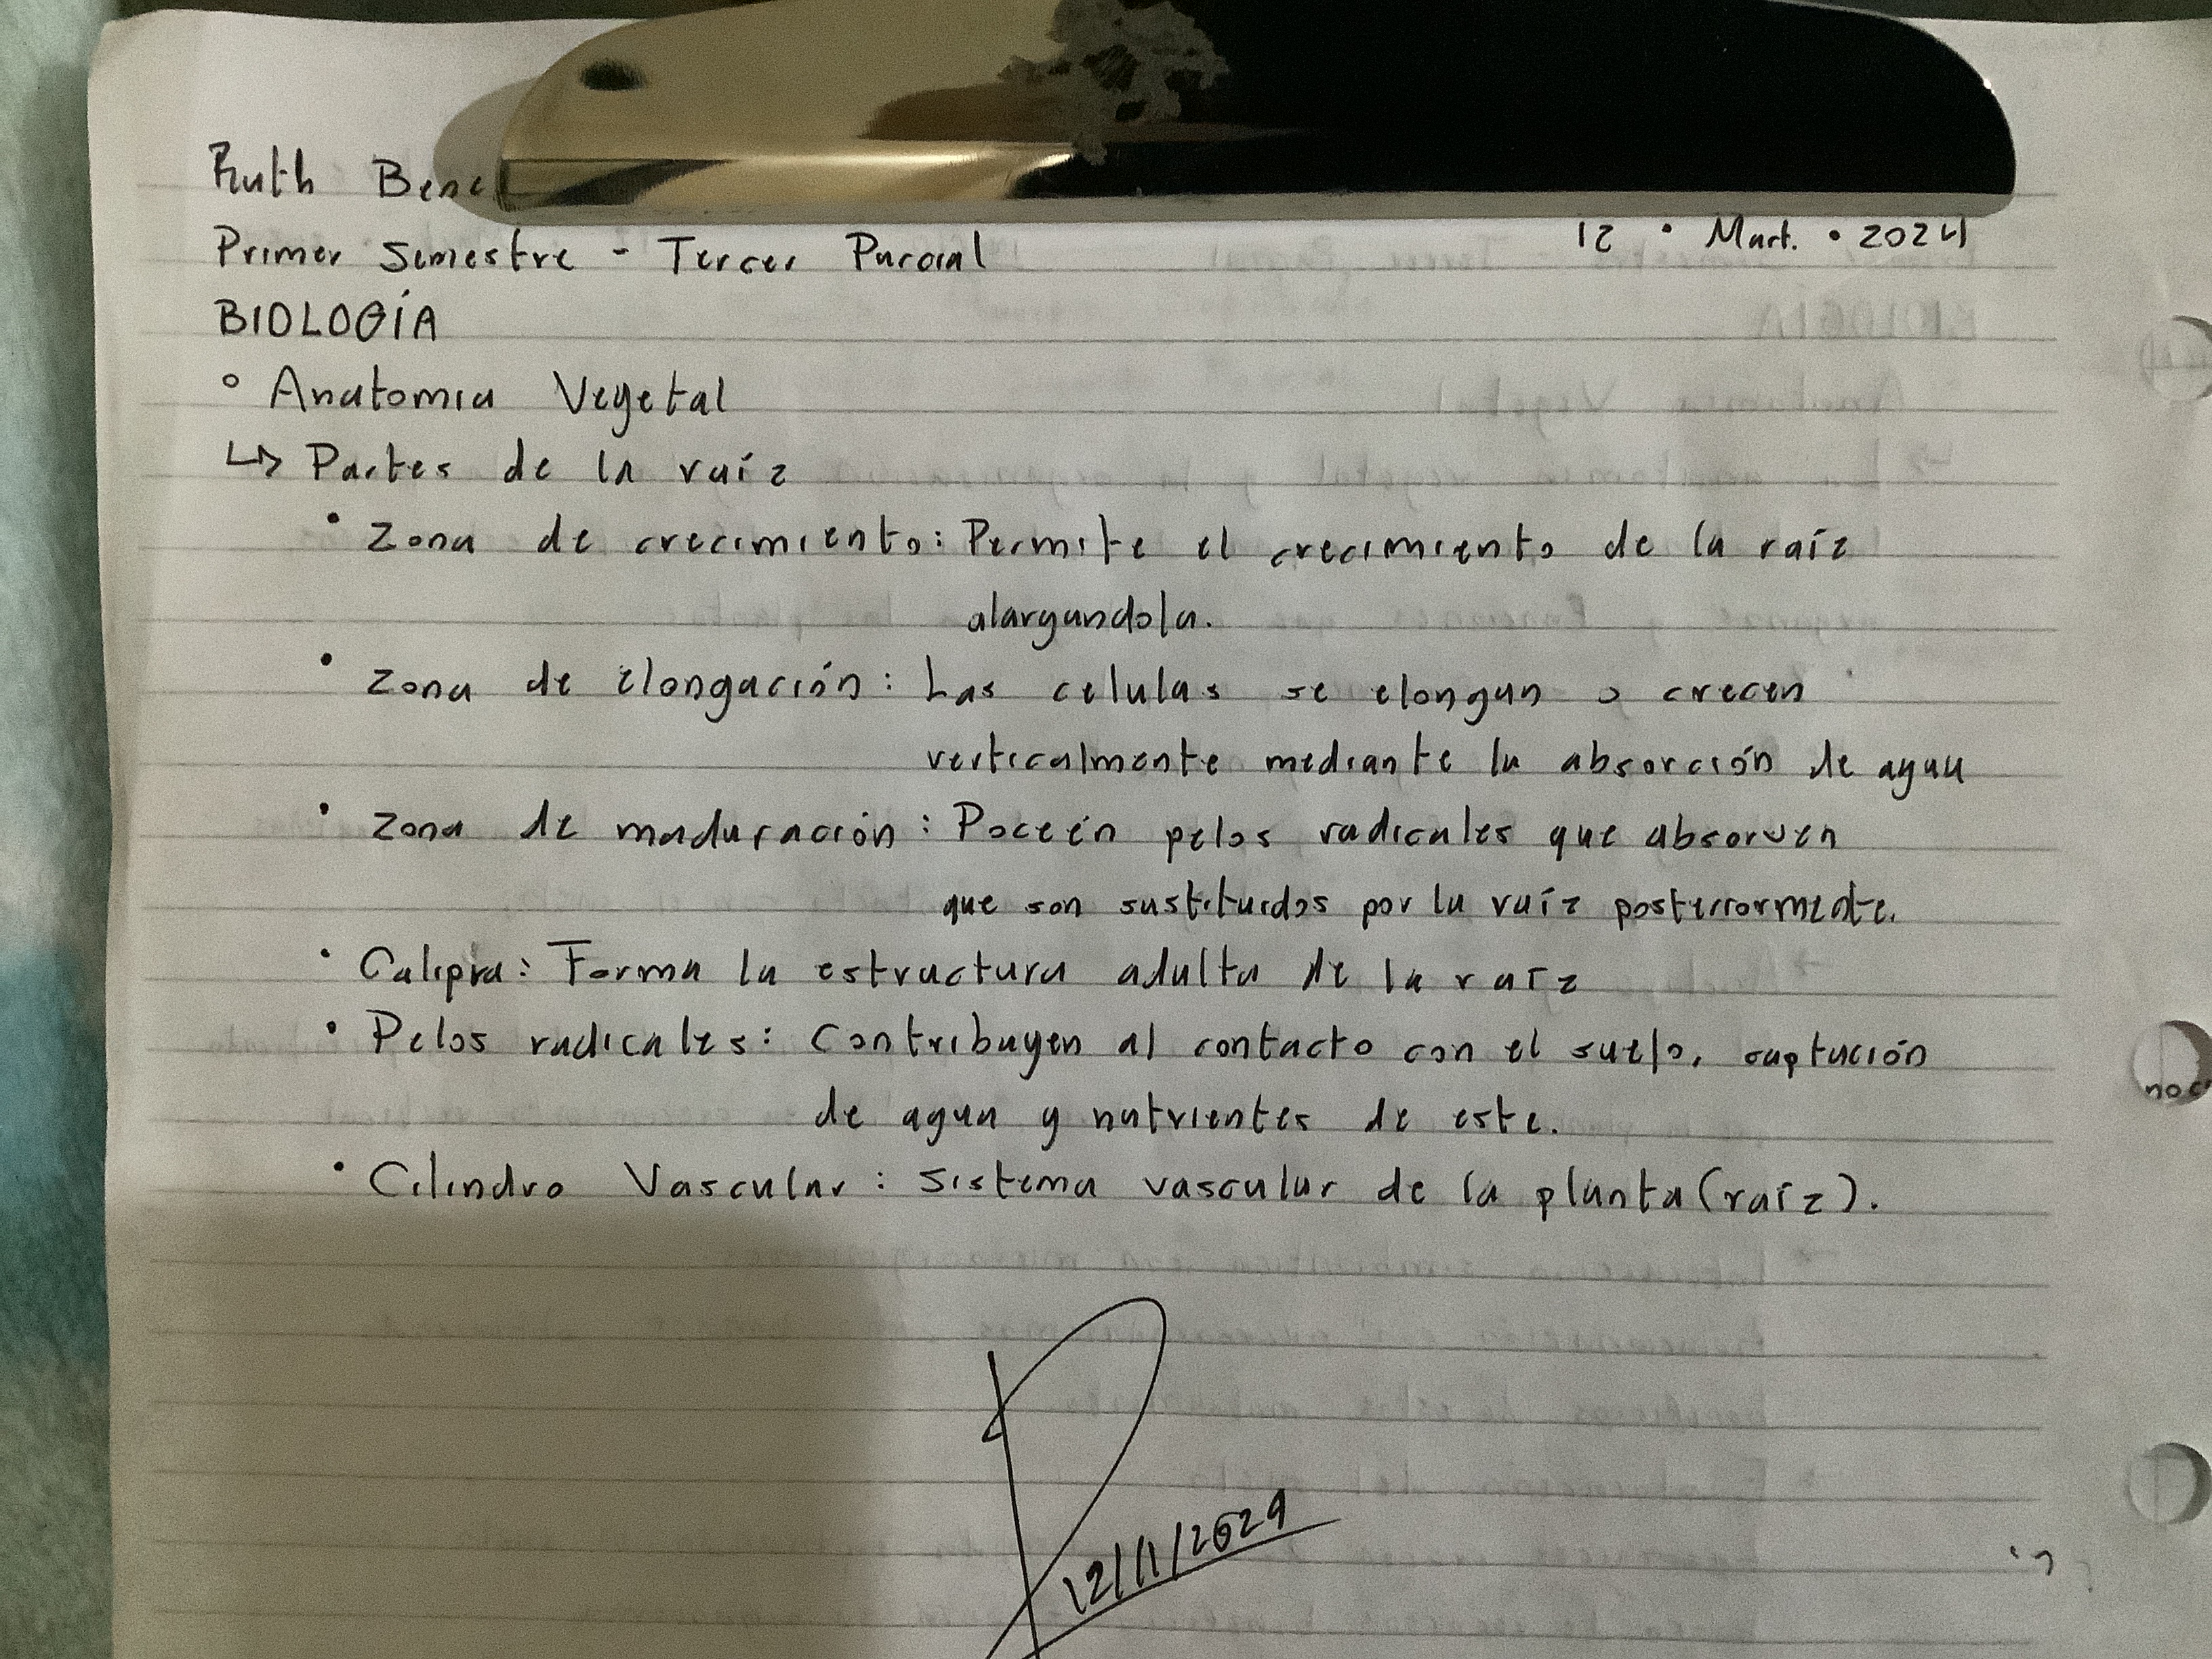 Ruth Bene
Primer Semestre - Tercer Parcial
12 • Mart. • 2024
BIOLOGÍA
° Anatomia Vegetal
↳ Partes de la raíz
• Zona de crecimiento: Permite el crecimiento de la raíz
alargandola.
• Zona de elongación: Las celulas se elongan o crecen
verticalmente mediante la absorción de agua
• Zona de maduración: Poceén pelos radicales que absorven
que son sustituidos por la raíz posteriormente.
• Calipra: Forma la estructura adulta de la raíz
• Pelos radicales: Contribuyen al contacto con el suelo, captución
de agua y nutrientes de este.
• Cilindro Vascular: Sistema vascular de la planta (raíz).
12/11/2024